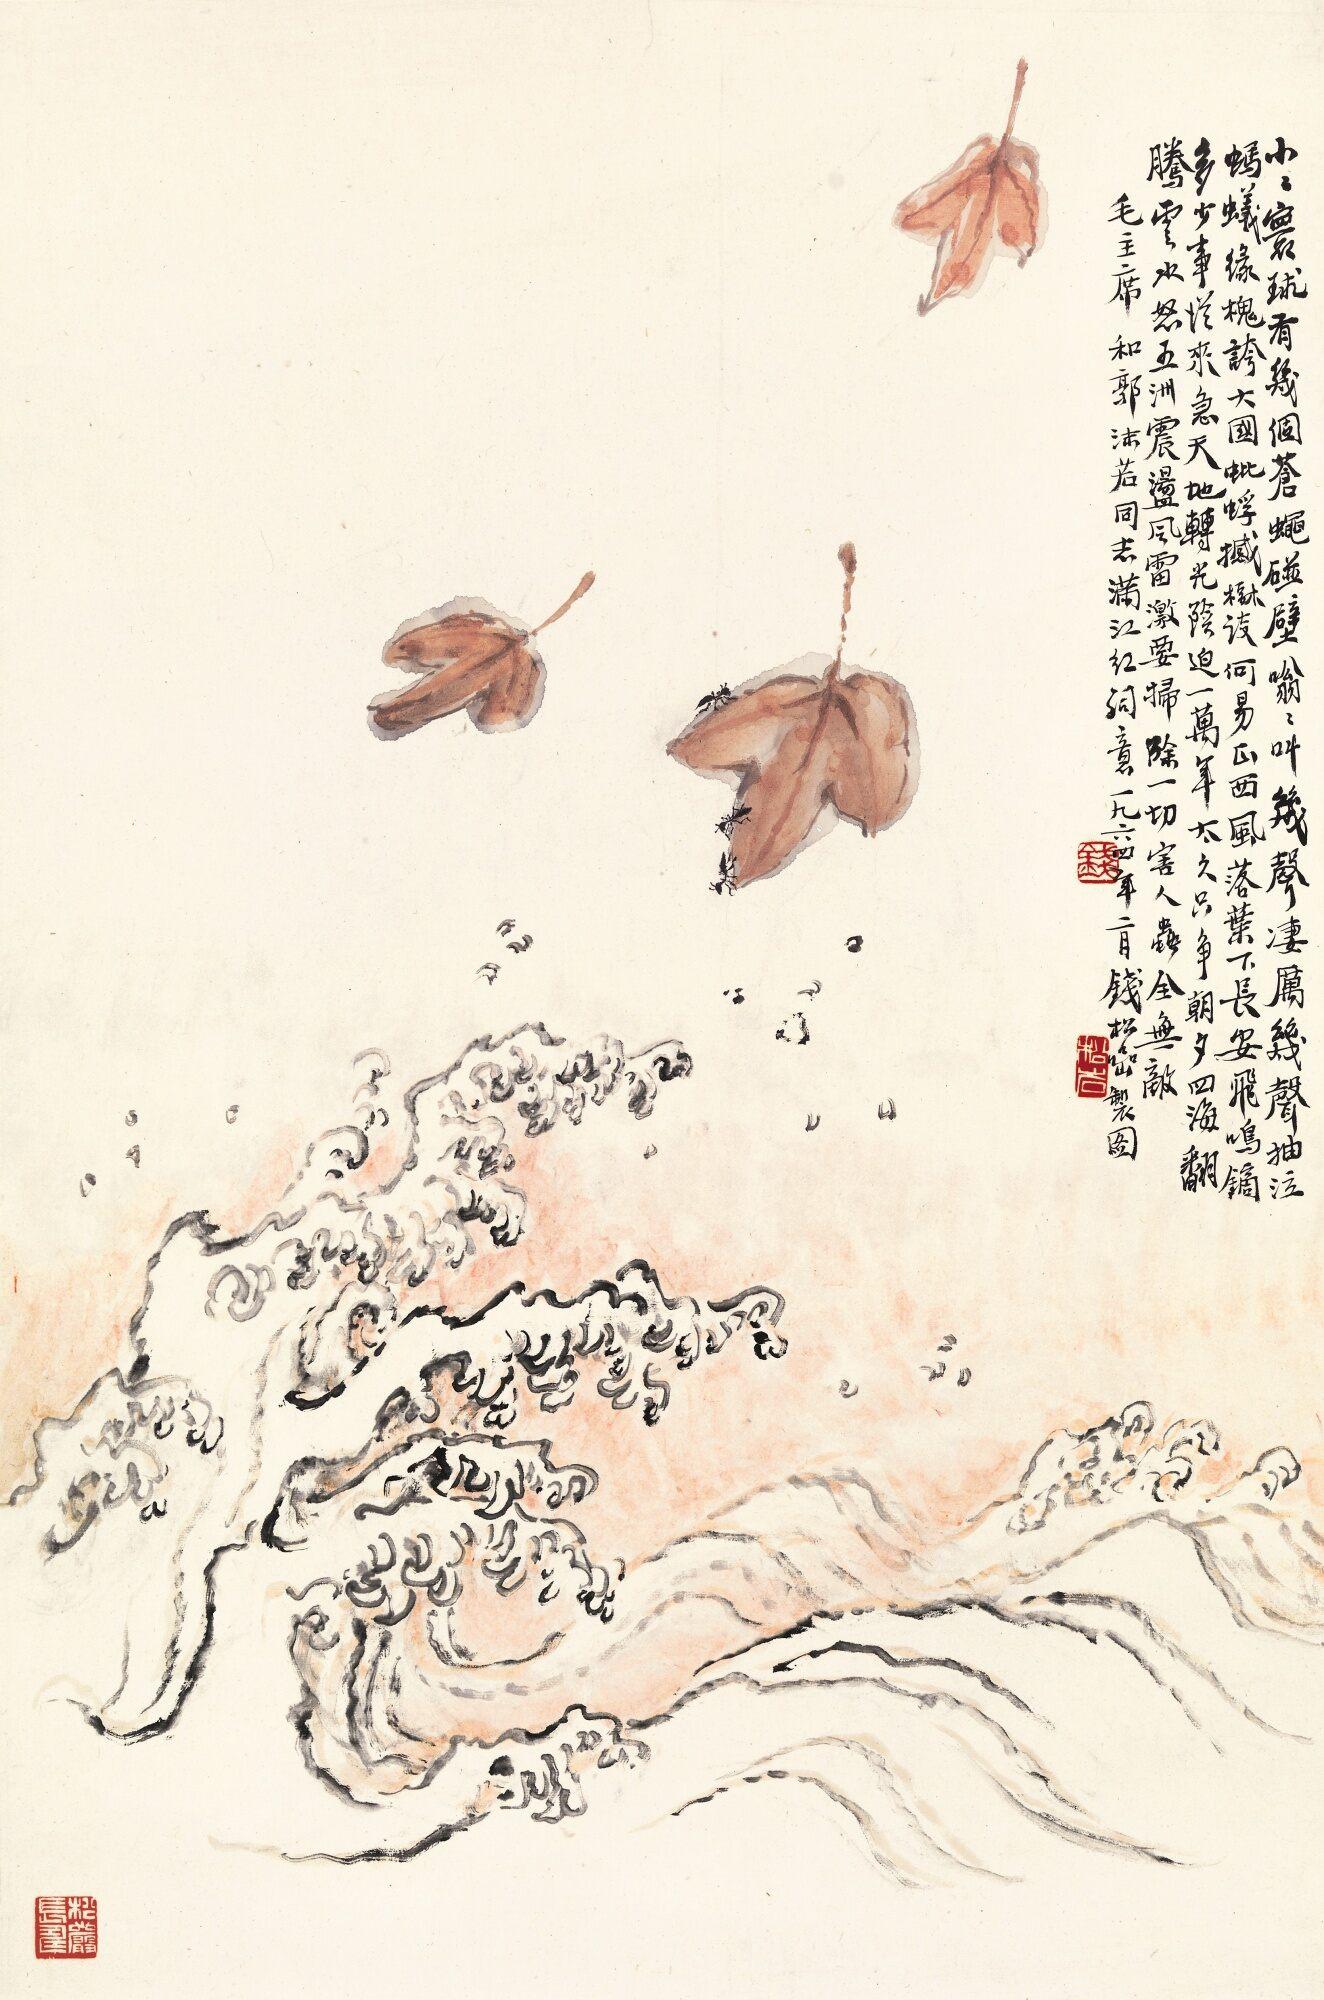 小〻寰球有幾個蒼蠅碰壁嗡〻叫幾聲凄厲幾聲抽泣
螞蟻緣槐誇大國蚍蜉撼樹談何易正西風落葉下長安飛鳴鏑
多少事從來急天地轉光陰迫一萬年太久只爭朝夕四海翻
騰雲水怒五洲震盪風雷激要掃除一切害人蟲全無敵
毛主席和郭沫若同志滿江紅詞意一九六四年二月錢松嵒製图
錢
松嵒